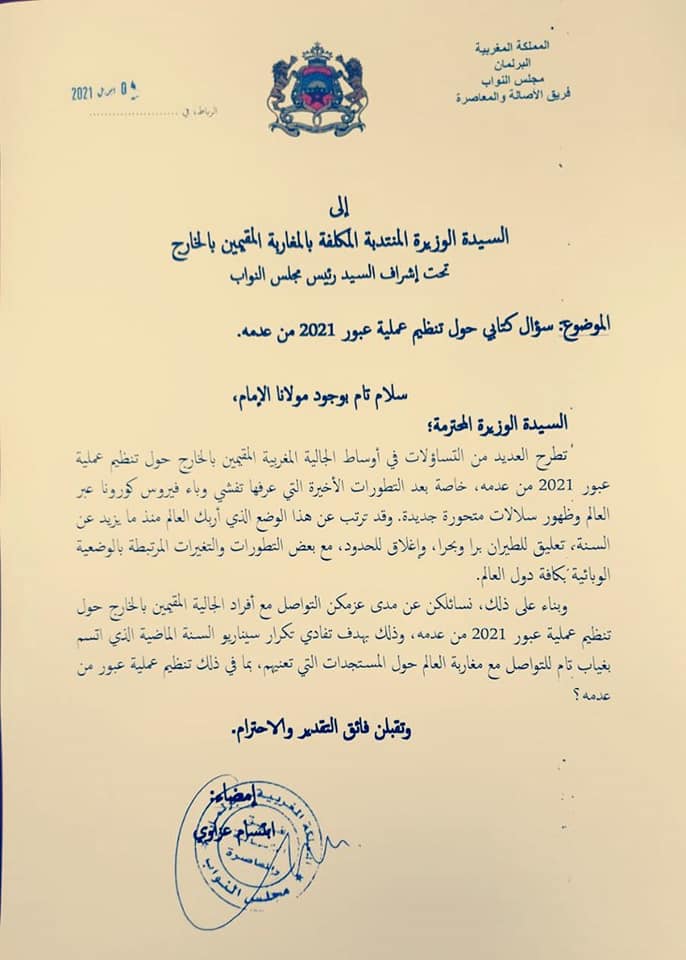 المملكة المغربية
البرلمان
مجلس النواب
فريق الأصالة والمعاصرة
04 ابريل 2021
الرباط، في ......................
إلى
السيدة الوزيرة المنتدبة المكلفة بالمغاربة المقيمين بالخارج
تحت إشراف السيد رئيس مجلس النواب
الموضوع: سؤال كتابي حول تنظيم عملية عبور 2021 من عدمه.
سلام تام بوجود مولانا الإمام،
السيدة الوزيرة المحترمة؛
تطرح العديد من التساؤلات في أوساط الجالية المغربية المقيمين بالخارج حول تنظيم عملية
عبور 2021 من عدمه، خاصة بعد التطورات الأخيرة التي عرفها تفشي وباء فيروس كورونا عبر
العالم وظهور سلالات متحورة جديدة. وقد ترتب عن هذا الوضع الذي أربك العالم منذ ما يزيد عن
السنة، تعليق للطيران برا وبحرا، وإغلاق للحدود، مع بعض التطورات والتغيرات المرتبطة بالوضعية
الوبائية بكافة دول العالم.
وبناء على ذلك، نسائلكن عن مدى عزمكن التواصل مع أفراد الجالية المقيمين بالخارج حول
تنظيم عملية عبور 2021 من عدمه، وذلك بهدف تفادي تكرار سيناريو السنة الماضية الذي اتسم
بغياب تام للتواصل مع مغاربة العالم حول المستجدات التي تعنيهم، بما في ذلك تنظيم عملية عبور من
عدمه؟
وتقبلن فائق التقدير والاحترام.
إمضاء:
ابتسام عزاوي
المملكة المغربية
والمعاصرة
مجلس النواب